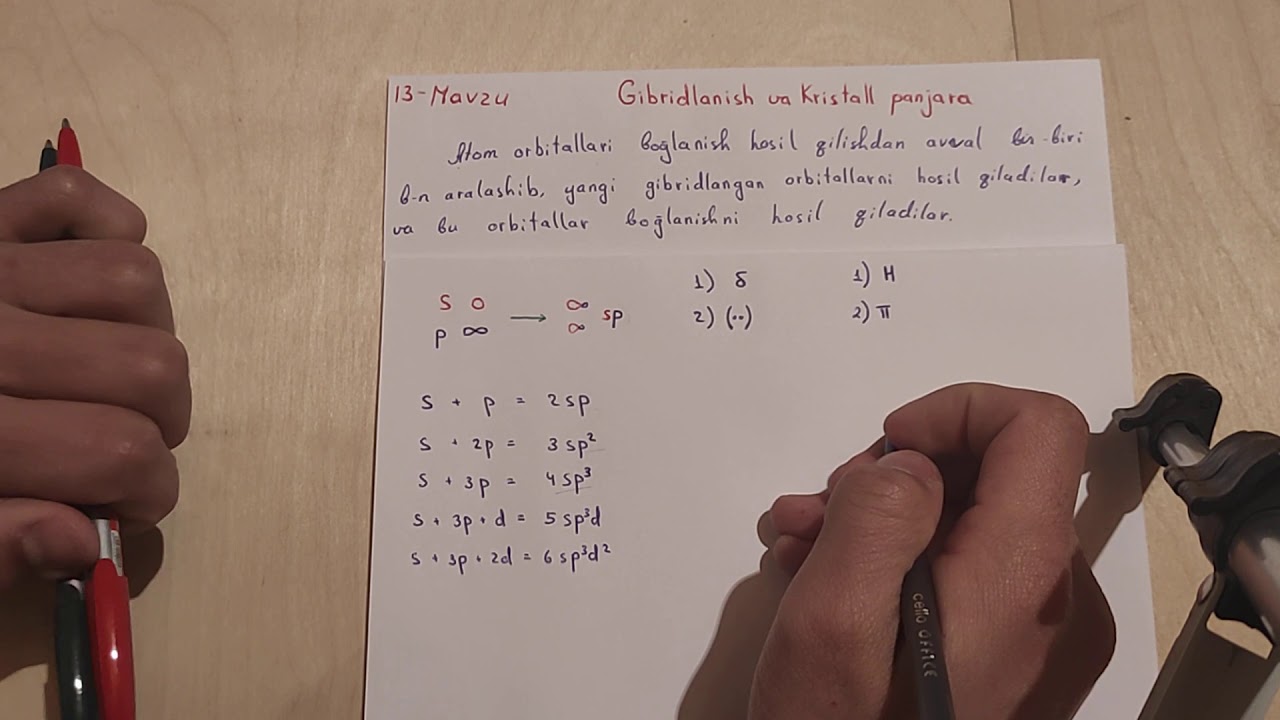 13-Mavzu Gibridlanish va Kristall panjara
Atom orbitallari bog'lanish hosil qilishdan avval bir-biri
b-n aralashib, yangi gibridlangan orbitallarni hosil qiladilar,
va bu orbitallar bog'lanishni hosil qiladilar.
S O → ∞ sp
p ∞ ∞
1) δ 1) H
2) (··) 2) π
S + p = 2sp
S + 2p = 3sp²
S + 3p = 4sp³
S + 3p + d = 5sp³d
S + 3p + 2d = 6sp³d²
cello OFFICE